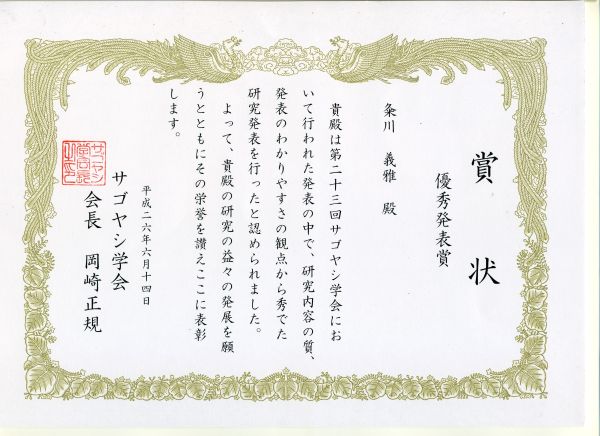 賞状
優秀発表賞
粂川 義雅 殿
貴殿は第二十三回サゴヤシ学会にお
いて行われた発表の中で、研究内容の質、
発表のわかりやすさの観点から秀でた
研究発表を行ったと認められました。
よって、貴殿の研究の益々の発展を願
うとともにその栄誉を讃えここに表彰
します。
平成二六年六月十四日
サゴヤシ学会
会長 岡崎正規
サゴヤシ